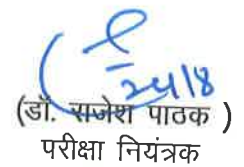 24/8
(डॉ. राजेश पाठक )
परीक्षा नियंत्रक